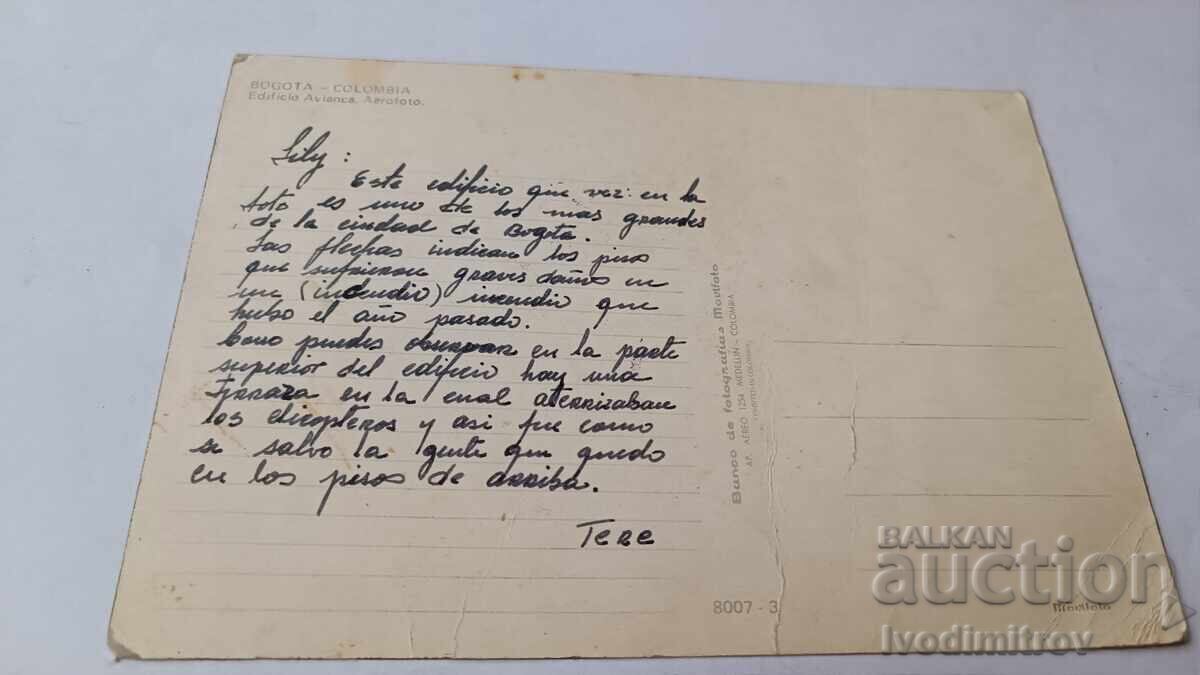 BOGOTA - COLOMBIA
Edificio Avianca. Aerofoto.
Lily :
Este edificio que vez en la
foto es uno de los mas grandes
de la ciudad de Bogota.
Las flechas indican los pisos
que sufrieron graves daños en
un (incendio) incendio que
hubo el año pasado.
Como puedes observar en la parte
superior del edificio hay una
Terraza en la cual aterrizaban
los elicopteros y asi fue como
se salvo la gente que quedo
en los pisos de arriba.
Tere
Banco de fotografias Movifoto
AP. AEREO 1254 MEDELLIN - COLOMBIA
8007 - 3
Movifoto
BALKAN
auction
Ivodimitrov